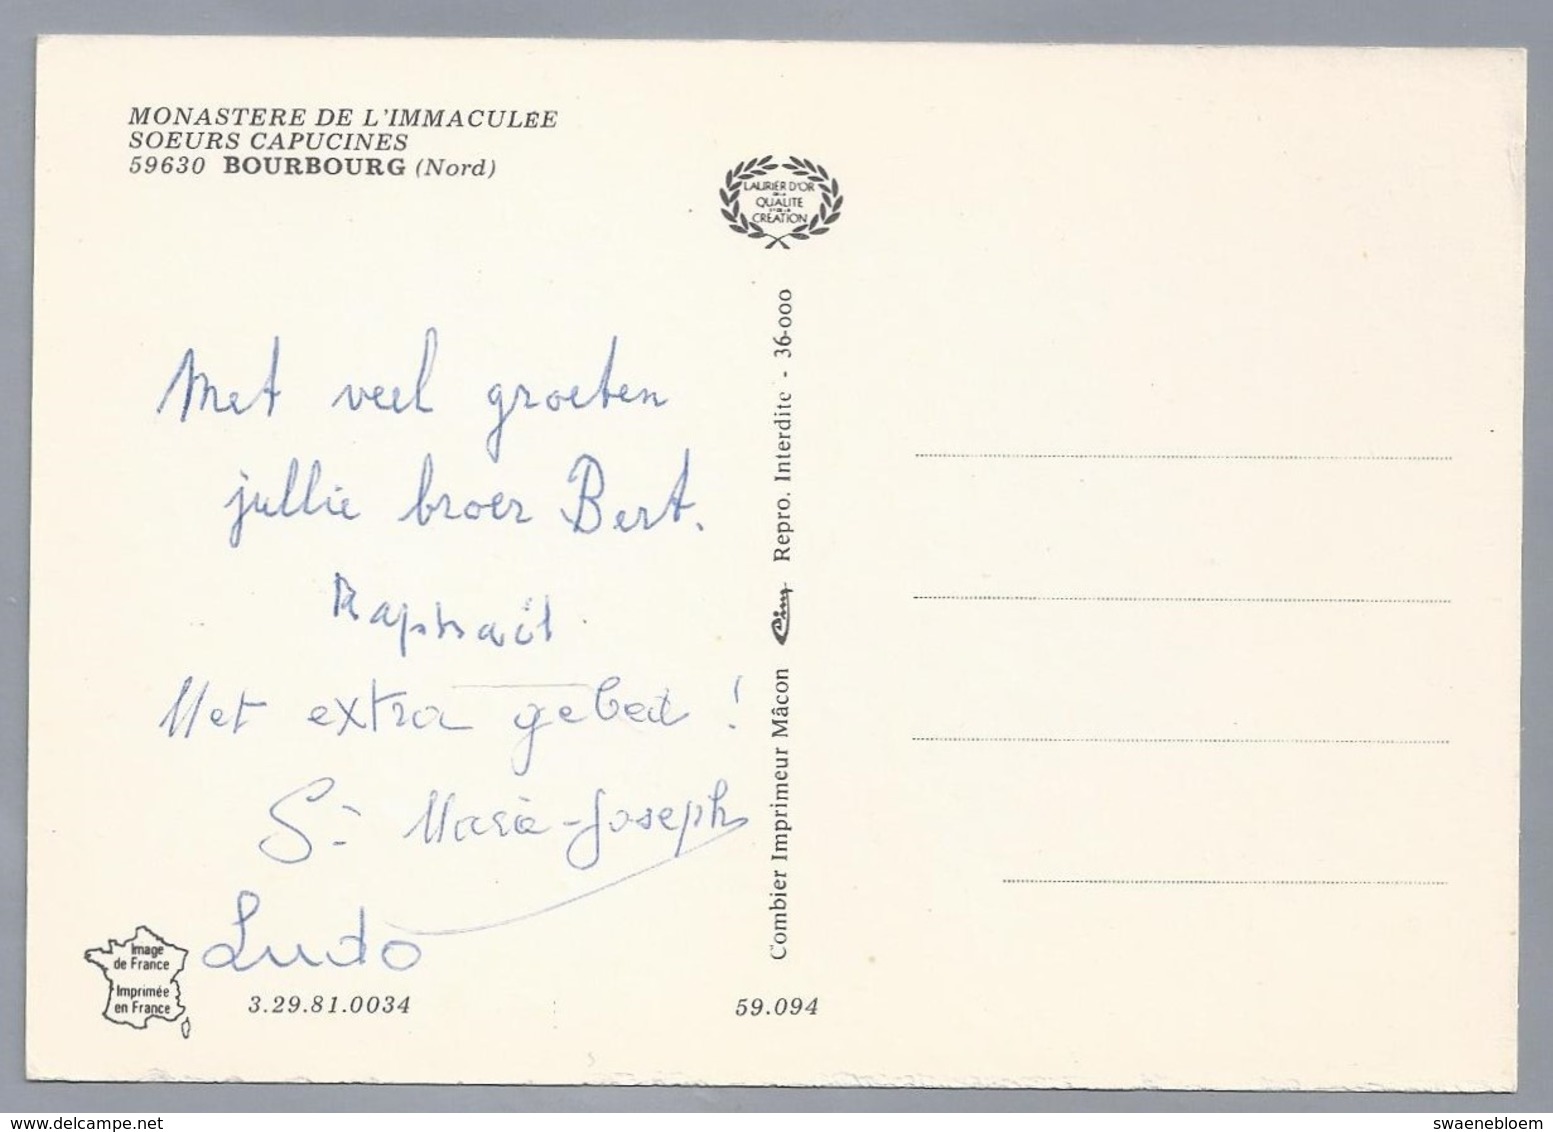 MONASTERE DE L'IMMACULÉE
SOEURS CAPUCINES
59630 BOURBOURG (Nord)
LAURIER D'OR
DE LA
QUALITE
ET DE LA
CRÉATION
Met veel groeten
jullie broer Bert.
Raphaël
Met extra gebed !
Sr Marie-Joseph
Ludo
Image
de France
Imprimée
en France
3.29.81.0034
59.094
Combier Imprimeur Mâcon Cim Repro. Interdite - 36-000
delcampe.net
swaenebloem